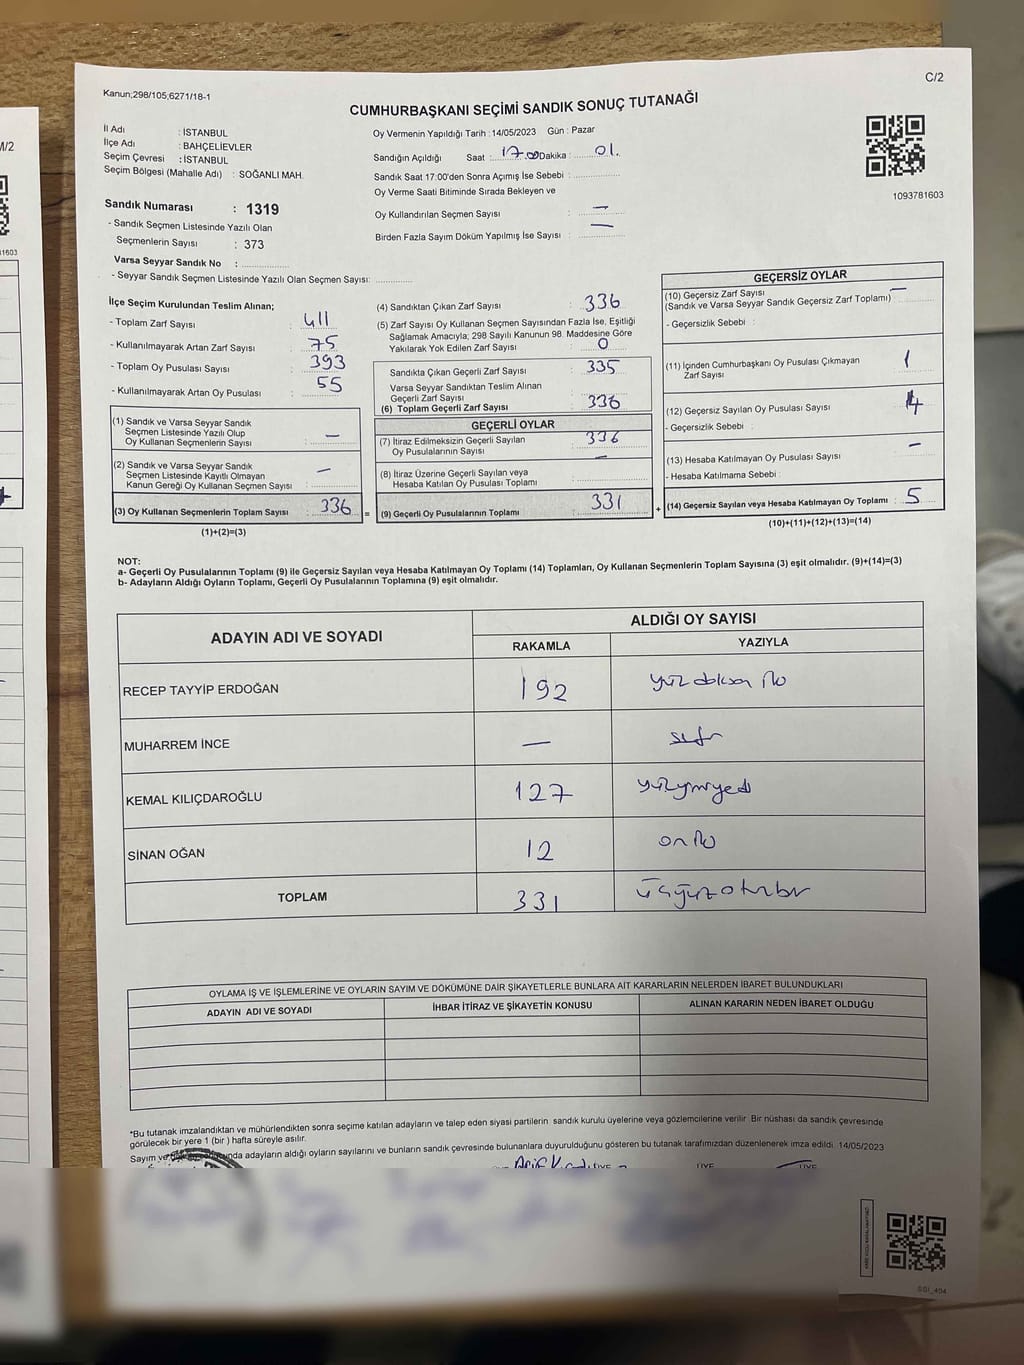 C/2
Kanun;298/105;6271/18-1
CUMHURBAŞKANI SEÇİMİ SANDIK SONUÇ TUTANAĞI
İl Adı : İSTANBUL
İlçe Adı : BAHÇELİEVLER
Seçim Çevresi : İSTANBUL
Seçim Bölgesi (Mahalle Adı) : SOĞANLI MAH.
Oy Vermenin Yapıldığı Tarih : 14/05/2023 Gün : Pazar
Sandığın Açıldığı Saat : 17.00 Dakika : 01.
Sandık Saat 17:00'den Sonra Açımış İse Sebebi :
Oy Verme Saati Bitiminde Sırada Bekleyen ve
Oy Kullandırılan Seçmen Sayısı : —
Birden Fazla Sayım Döküm Yapılmış İse Sayısı : —
1093781603
Sandık Numarası : 1319
- Sandık Seçmen Listesinde Yazılı Olan
Seçmenlerin Sayısı : 373
Varsa Seyyar Sandık No :
- Seyyar Sandık Seçmen Listesinde Yazılı Olan Seçmen Sayısı:
İlçe Seçim Kurulundan Teslim Alınan;
- Toplam Zarf Sayısı : 411
- Kullanılmayarak Artan Zarf Sayısı : 75
- Toplam Oy Pusulası Sayısı : 393
- Kullanılmayarak Artan Oy Pusulası : 55
(1) Sandık ve Varsa Seyyar Sandık
Seçmen Listesinde Yazılı Olup
Oy Kullanan Seçmenlerin Sayısı : —
(2) Sandık ve Varsa Seyyar Sandık
Seçmen Listesinde Kayıtlı Olmayan
Kanun Gereği Oy Kullanan Seçmen Sayısı : —
(3) Oy Kullanan Seçmenlerin Toplam Sayısı : 336
(1)+(2)=(3)
=
(4) Sandıktan Çıkan Zarf Sayısı : 336
(5) Zarf Sayısı Oy Kullanan Seçmen Sayısından Fazla İse, Eşitliği
Sağlamak Amacıyla; 298 Sayılı Kanunun 98. Maddesine Göre
Yakılarak Yok Edilen Zarf Sayısı : 0
Sandıkta Çıkan Geçerli Zarf Sayısı : 335
Varsa Seyyar Sandıktan Teslim Alınan
Geçerli Zarf Sayısı :
(6) Toplam Geçerli Zarf Sayısı : 336
GEÇERLİ OYLAR
(7) İtiraz Edilmeksizin Geçerli Sayılan : 336
Oy Pusulalarının Sayısı
(8) İtiraz Üzerine Geçerli Sayılan veya —
Hesaba Katılan Oy Pusulası Toplamı :
(9) Geçerli Oy Pusulalarının Toplamı : 331
+
GEÇERSİZ OYLAR
(10) Geçersiz Zarf Sayısı —
(Sandık ve Varsa Seyyar Sandık Geçersiz Zarf Toplamı) :
- Geçersizlik Sebebi :
(11) İçinden Cumhurbaşkanı Oy Pusulası Çıkmayan : 1
Zarf Sayısı
(12) Geçersiz Sayılan Oy Pusulası Sayısı : 4
- Geçersizlik Sebebi :
(13) Hesaba Katılmayan Oy Pusulası Sayısı : —
- Hesaba Katılmama Sebebi :
(14) Geçersiz Sayılan veya Hesaba Katılmayan Oy Toplamı : 5
(10)+(11)+(12)+(13)=(14)
NOT:
a- Geçerli Oy Pusulalarının Toplamı (9) ile Geçersiz Sayılan veya Hesaba Katılmayan Oy Toplamı (14) Toplamları, Oy Kullanan Seçmenlerin Toplam Sayısına (3) eşit olmalıdır. (9)+(14)=(3)
b- Adayların Aldığı Oyların Toplamı, Geçerli Oy Pusulalarının Toplamına (9) eşit olmalıdır.
ADAYIN ADI VE SOYADI ALDIĞI OY SAYISI
RAKAMLA YAZIYLA
RECEP TAYYİP ERDOĞAN 192 yüz doksan iki
MUHARREM İNCE — sıfır
KEMAL KILIÇDAROĞLU 127 yüzyirmiyedi
SİNAN OĞAN 12 oniki
TOPLAM 331 üçyüzotuzbir
OYLAMA İŞ VE İŞLEMLERİNE VE OYLARIN SAYIM VE DÖKÜMÜNE DAİR ŞİKAYETLERLE BUNLARA AİT KARARLARIN NELERDEN İBARET BULUNDUKLARI
ADAYIN ADI VE SOYADI İHBAR İTİRAZ VE ŞİKAYETİN KONUSU ALINAN KARARIN NEDEN İBARET OLDUĞU
*Bu tutanak imzalandıktan ve mühürlendikten sonra seçime katılan adayların ve talep eden siyasi partilerin sandık kurulu üyelerine veya gözlemcilerine verilir. Bir nüshası da sandık çevresinde
görülecek bir yere 1 (bir ) hafta süreyle asılır.
Sayım ve adayların aldığı oyların sayılarını ve bunların sandık çevresinde bulunanlara duyurulduğunu gösteren bu tutanak tarafımızdan düzenlenerek imza edildi. 14/05/2023
ÜYE ÜYE ÜYE